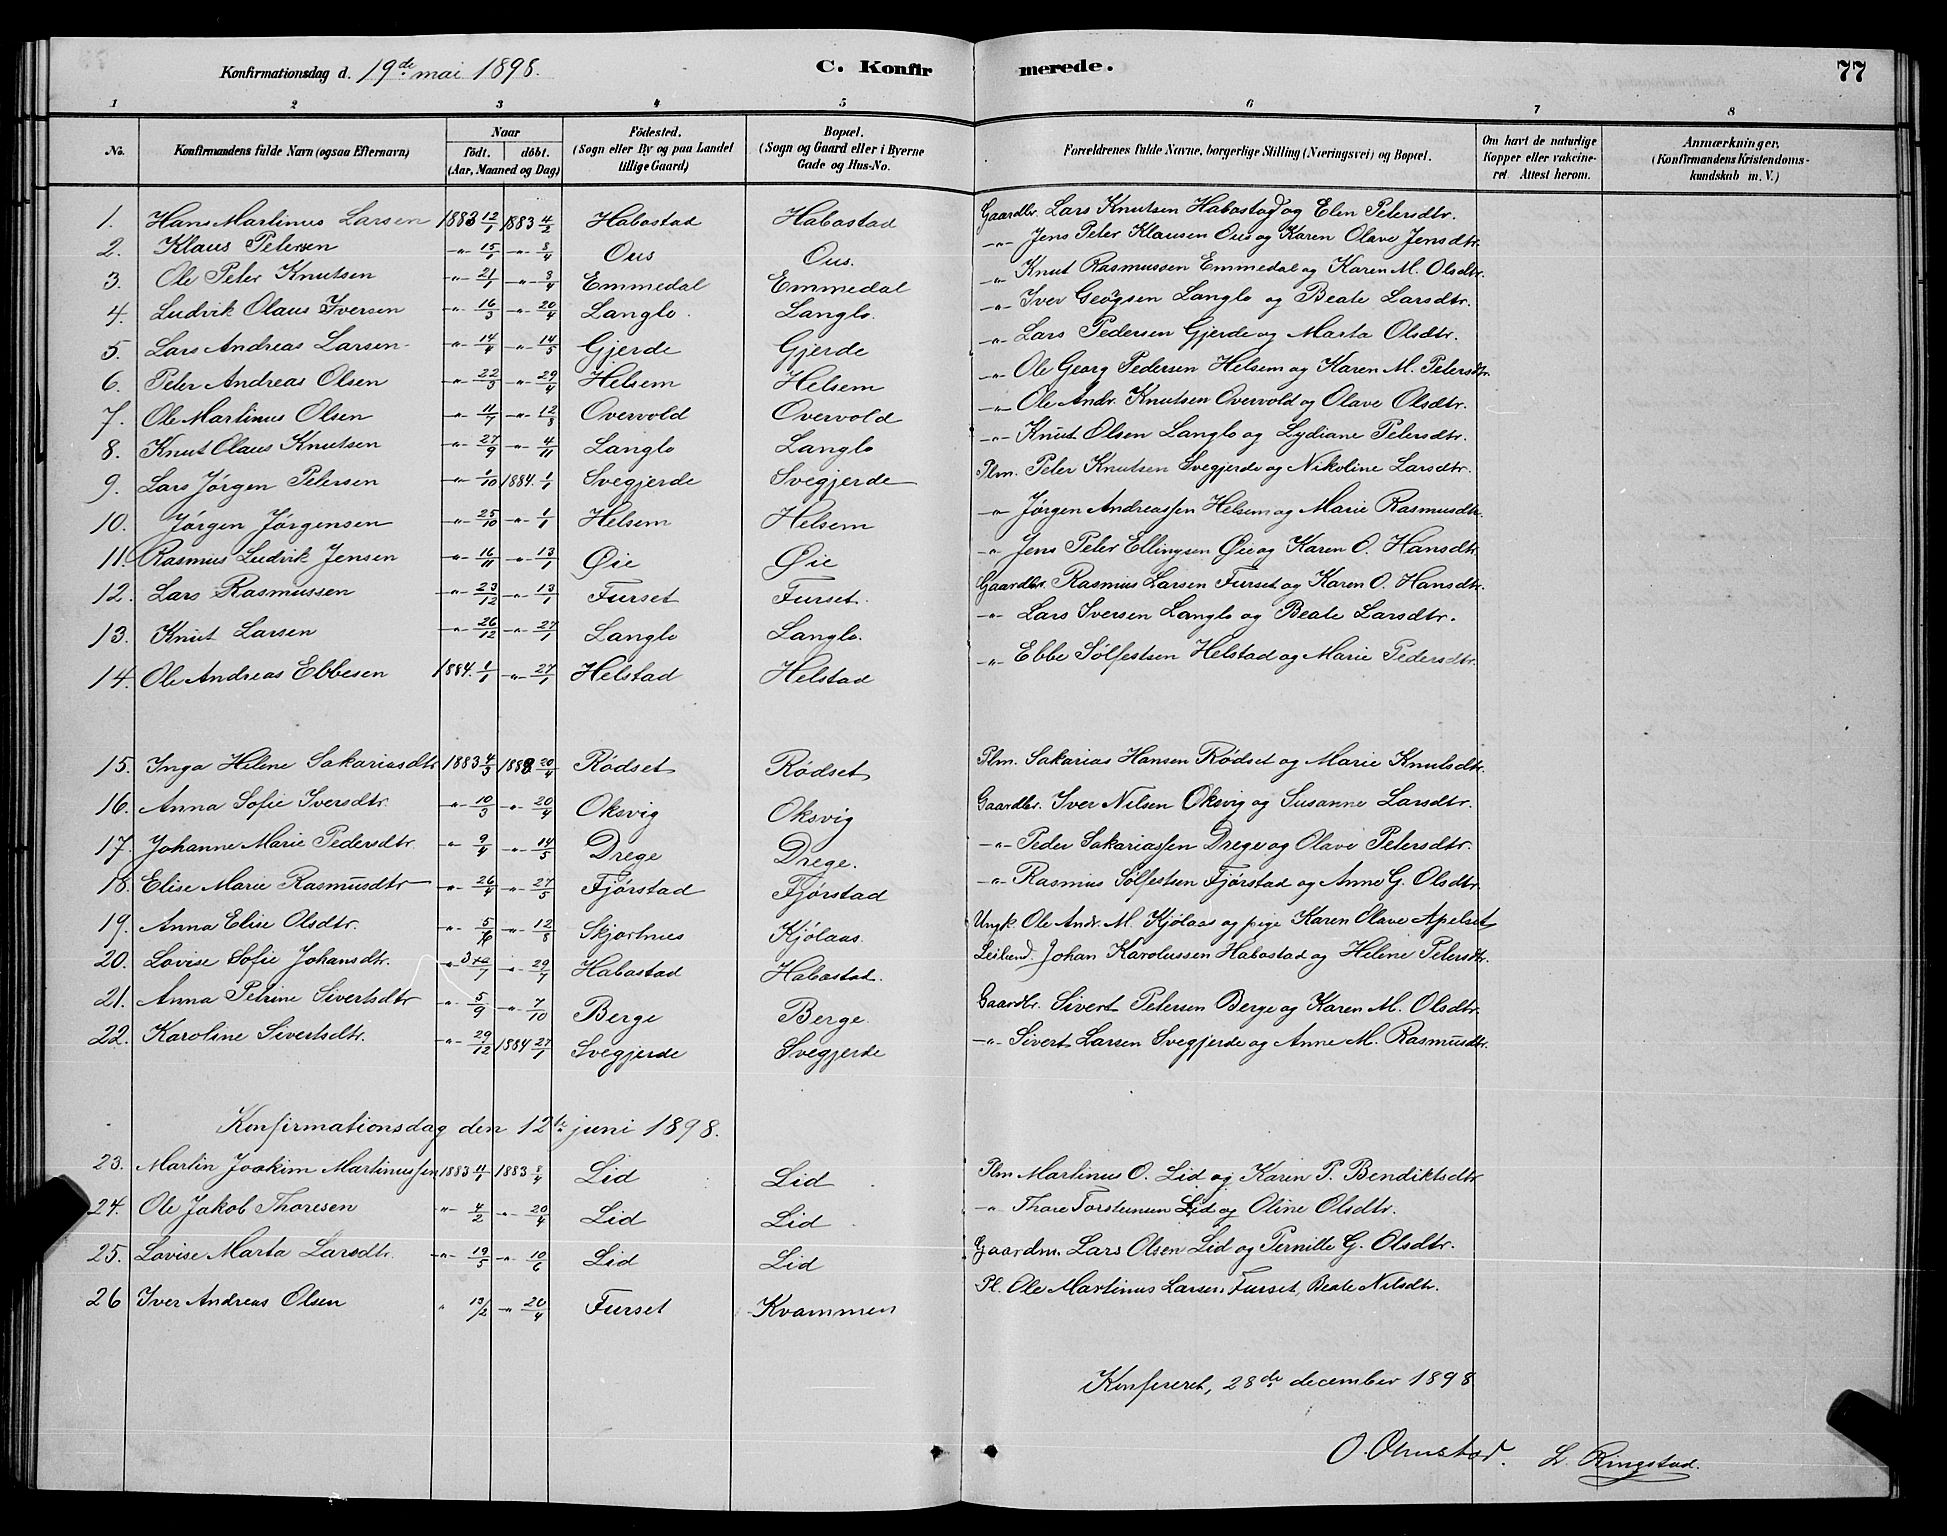 Konfirmationsdag d. 19de mai 1898. C. Konfirmerede. 77
1 2 3 4 5 6 7 8
No. Konfirmandens fulde Navn (ogsaa Efternavn) Naar födt. döbt. (Aar, Maaned og Dag) Födested. (Sogn eller By og paa Landet tillige Gaard) Bopæl. (Sogn og Gaard eller i Byerne Gade og Hus-No. Forældrenes fulde Navne, borgerlige Stilling (Næringsvei) og Bopæl. Om havt de naturlige Kopper eller vakcineret. Attest herom. Anmærkninger, (Konfirmandens Kristendomskundskab m. V.)
1. Hans Martinus Larsen 1883 12/1 1883 4/2 Habostad Habostad Gaardbr. Lars Knutsen Habostad og Elen Petersdtr.
2. Klaus Petersen -"- 15/1 -"- 8/4 Ous Ous. -"- Jens Peter Klausen Ous og Karen Olave Jensdtr.
3. Ole Peter Knutsen -"- 21/1 -"- 3/4 Emmedal Emmedal " Knut Rasmussen Emmedal og Karen M. Olsdtr.
4. Ludvik Olaus Iversen -"- 16/3 -"- 20/4 Langlo. Langlo. -"- Iver Georgsen Langlo og Beate Larsdtr.
5. Lars Andreas Larsen -"- 14/4 -"- 14/5 Gjerde Gjerde -"- Lars Pedersen Gjerde og Marta Olsdtr.
6. Peter Andreas Olsen -"- 22/3 -"- 29/4 Helsem Helsem -"- Ole Georg Pedersen Helsem og Karen M. Petersdtr.
7. Ole Martinus Olsen -"- 11/7 -"- 12/8 Overvold Overvold -"- Ole Andr. Knutsen Overvold og Olave Olsdtr.
8. Knut Olaus Knutsen -"- 27/9 -"- 4/11 Langlo Langlo -"- Knut Olsen Langlo og Lydiane Petersdtr.
9. Lars Jørgen Petersen -"- 1/10 1884. 1/1 Svegjerde Svegjerde Plm. Peter Knutsen Svegjerde og Nikoline Larsdtr.
10. Jørgen Jørgensen -"- 25/10 -"- 1/1 Helsem Helsem -"- Jørgen Andreassen Helsem og Marie Rasmusdtr.
11. Rasmus Ludvik Jensen -"- 16/11 -"- 13/1 Øie Øie -"- Jens Peter Ellingsen Øie og Karen O. Hansdtr.
12. Lars Rasmussen -"- 23/12 -"- 13/1 Furset Furset. Gaardbr. Rasmus Larsen Furset og Karen O. Hansdtr.
13. Knut Larsen -"- 26/12 -"- 27/1 Langlo Langlo. -"- Lars Iversen Langlo og Beate Larsdtr.
14. Ole Andreas Ebbesen 1884. 1/1 -"- 27/1 Helstad Helstad -"- Ebbe Sølfestsen Helstad og Marie Pedersdtr.
15. Inga Helene Sakariasdtr 1883 4/3 1883 20/4 Rødset Rødset Plm. Sakarias Hansen Rødset og Marie Knutsdtr.
16. Anna Sofie Iversdtr. -"- 10/3 -"- 20/4 Oksvig Oksvig Gaardbr. Iver Nilsen Oksvig og Susanne Larsdtr.
17. Johanne Marie Pedersdtr. -"- 9/4 -"- 14/5 Drege Drege. -"- Peder Sakariassen Drege og Olave Petersdtr.
18. Elise Marie Rasmusdtr -"- 26/4 -"- 27/5 Fjørstad Fjørstad -"- Rasmus Sølfestsen Fjørstad og Anne G. Olsdtr.
19. Anna Elise Olsdtr. -"- 5/6 -"- 12/8 Skjortnes Kjølaas Ungk. Ole Andr. M. Kjølaas og pige Karen Olave Apelset
20. Lovise Sofie Johansdtr. -"- -"- 29/7 Habostad Habostad. Leilend. Johan Karolussen Habostad og Helene Petersdtr.
21. Anna Petrine Sivertsdtr -"- 5/9 -"- 7/10 Berge Berge. Gaardbr. Sivert Petersen Berge og Karen M. Olsdtr.
22. Karoline Sivertsdtr. -"- 29/12 1884 27/1 Svegjerde Svegjerde -"- Sivert Larsen Svegjerde og Anne M. Rasmusdtr.
Konfirmationsdag den 12te juni 1898.
23. Martin Joakim Martinussen 1883 11/1 1883 8/4 Lid Lid Plm Martinus O. Lid og Karen P. Bendiktsdtr
24. Ole Jakob Thoresen -"- 4/2 -"- 20/4 Lid Lid -"- Thore Torsteinsen Lid og Oline Olsdtr.
25. Lovise Marta Larsdtr. -"- 19/5 -"- 10/6 Lid Lid Gaardm. Lars Olsen Lid og Pernille G. Olsdtr.
26 Iver Andreas Olsen " 19/2 -"- 20/4 Furset Kvammen Pl. Ole Martinus Larsen Furset, Beate Nilsdtr.
Konfereret, 28de december 1898
O. Olmstad. L. Ringstad.